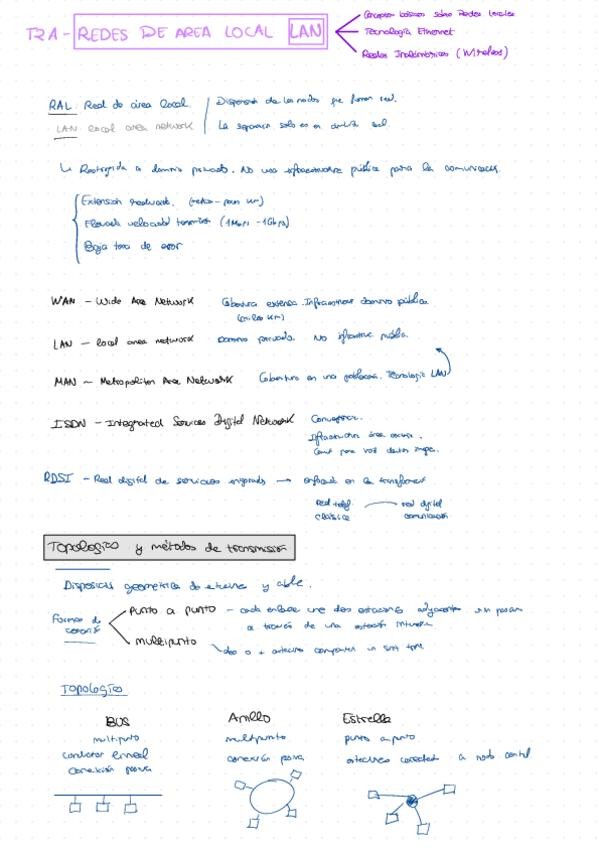 T2A - REDES DE AREA LOCAL LAN
Conceptos básicos sobre Redes locales
Tecnología Ethernet
Redes Inalámbricas (Wireless)
RAL: Red de área local.
Dispersión de los nodos que forman red.
LAN: local area network
La separación solo es en ámbito local.
↳ Restringida a dominio privado. No usa infraestructura pública para la comunicación.
Extensión moderada. (metros - pocos km)
Elevada velocidad transmisión (1Mbps - 1Gbps)
Baja tasa de error
WAN - Wide Area Network
Cobertura extensa. Infraestructura dominio pública.
(miles km)
LAN - local area network
Dominio privado. No infraestruc pública.
MAN - Metropolitan Area Network
Cobertura en una población. Tecnología LAN
ISDN - Integrated Services Digital Network
Convergencia.
Infraestructura área
para voz datos
RDSI - Red digital de servicios integrados →
en la
red telef.
clásica
red digital
comunicación
Topologías y métodos de transmisión
Disposición geométrica de y cable.
Formas de
conexión
punto a punto - cada enlace une dos estaciones adyacentes sin pasar
a través de una estación intermedia
multipunto
dos o + estaciones comparten un
TOPOLOGÍAS
BUS
Anillo
Estrella
multipunto
multipunto
punto a punto
conductor lineal
conexión pasiva
estaciones conectadas a nodo central
conexión pasiva